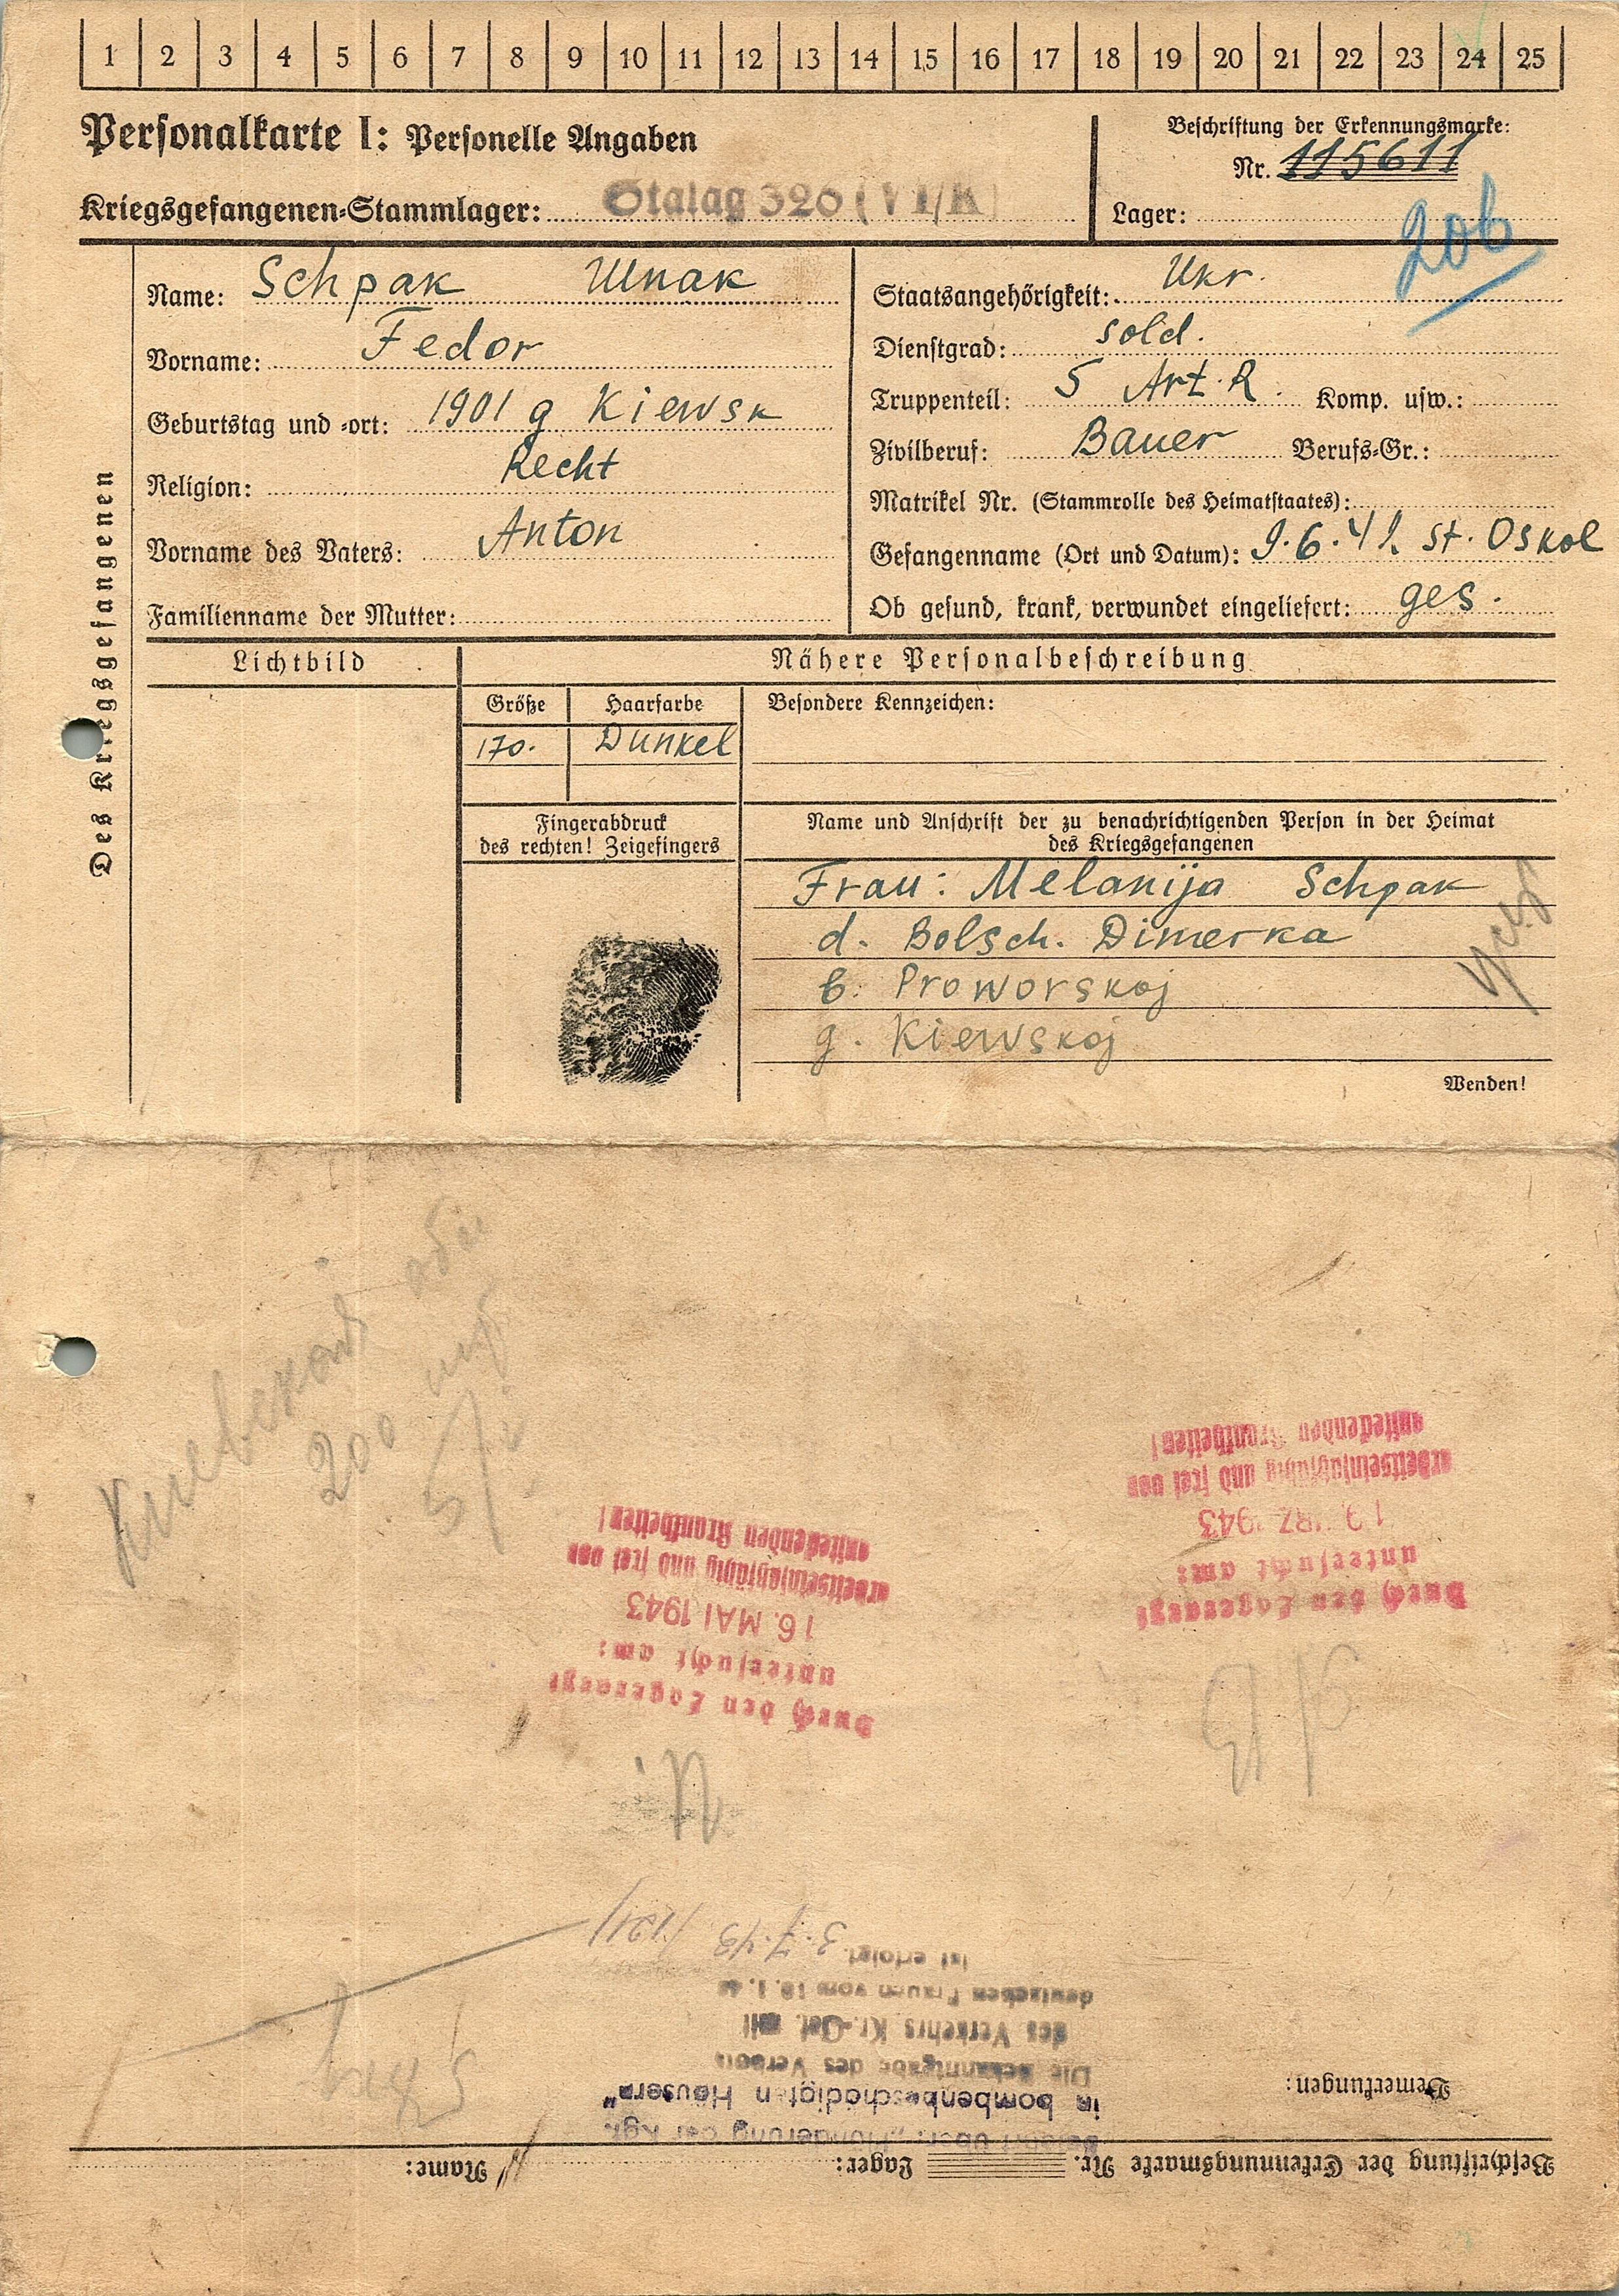 1 2 3 4 5 6 7 8 9 10 11 12 13 14 15 16 17 18 19 20 21 22 23 24 25
Personalkarte I: Personelle Angaben
Kriegsgefangenen-Stammlager: Stalag 326 (VI/K)
Beschriftung der Erkennungsmarke:
Nr. 115611
Lager:
206
Des Kriegsgefangenen
Name: Schpak Шпак
Vorname: Fedor
Geburtstag und -ort: 1901 g Kiewsk
Religion: Recht
Vorname des Vaters: Anton
Familienname der Mutter:
Staatsangehörigkeit: Ukr.
Dienstgrad: sold.
Truppenteil: 5 Art. R. Komp. usw.:
Zivilberuf: Bauer Berufs-Gr.:
Matrikel Nr. (Stammrolle des Heimatstaates):
Gefangenname (Ort und Datum): 9.6.42 st. Oskol
Ob gesund, krank, verwundet eingeliefert: ges.
Lichtbild
Nähere Personalbeschreibung
Größe Haarfarbe Besondere Kennzeichen:
170. Dunkel
Fingerabdruck
des rechten! Zeigefingers
Name und Anschrift der zu benachrichtigenden Person in der Heimat
des Kriegsgefangenen
Frau: Melanija Schpak
d. Bolsch. Dimerka
b. Proworskoj
g. Kiewskoj
Wenden!
Киевской обл
200
Durch den Lagerarzt
untersucht am:
19. MRZ 1943
arbeitseinsatzfähig und frei von
ansteckenden Krankheiten!
Durch den Lagerarzt
untersucht am:
16. MAI 1943
arbeitseinsatzfähig und frei von
ansteckenden Krankheiten!
Beschriftung der Erkennungsmarke Nr. Lager: Name:
Bemerkungen:
Belehrt über: „Plünderung der Kgf.
in bombenbeschädigten Häusern"
Die Bekanntgabe des Verbots
des Verkehrs Kr.-Gef. mit
deutschen Frauen vom
ist erfolgt. 3.7.43